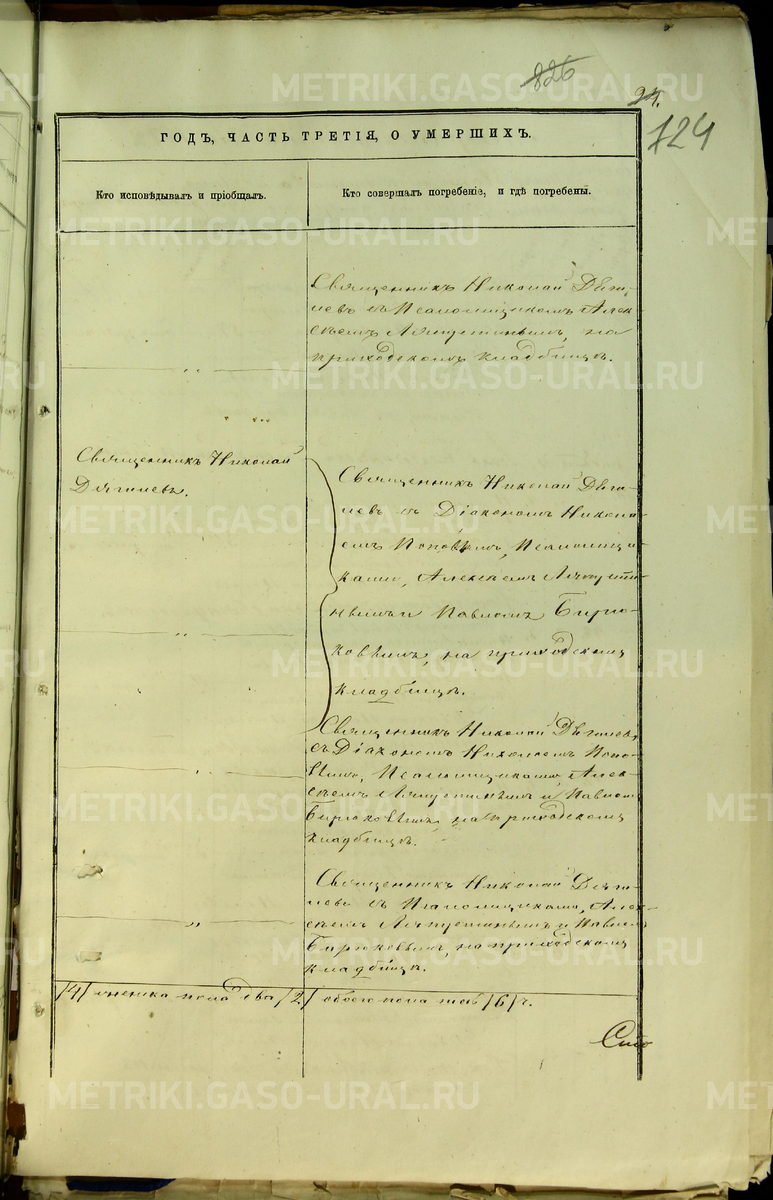 826
24.
124
ГОДЪ, ЧАСТЬ ТРЕТІЯ, О УМЕРШИХЪ.
Кто исповѣдывалъ и пріобщалъ.
Кто совершалъ погребеніе, и гдѣ погребены.
Священникъ Николай Дяги-
левъ съ Псаломщикомъ Алек-
сѣемъ Ляпустинымъ, на
приходскомъ кладбищѣ.
Священникъ Николай
Дягилевъ.
Священникъ Николай Дяги-
левъ съ Діакономъ Никола-
емъ Поповымъ, Псаломщи-
ками, Алексѣемъ Ляпусти-
нымъ и Павломъ Бирю-
ковымъ, на приходскомъ
кладбищѣ.
Священникъ Николай Дягилевъ
съ Діакономъ Николаемъ Попо-
вымъ, Псаломщиками, Алек-
сѣемъ Ляпустинымъ и Павломъ
Бирюковымъ, на приходскомъ
кладбищѣ.
Священникъ Николай Дяги-
левъ съ Псаломщиками, Алек-
сѣемъ Ляпустинымъ и Павломъ
Бирюковымъ, на приходскомъ
кладбищѣ.
/4/ женска пола два /2/ обоего пола /6/ ч.
METRIKI.GASO-URAL.RU